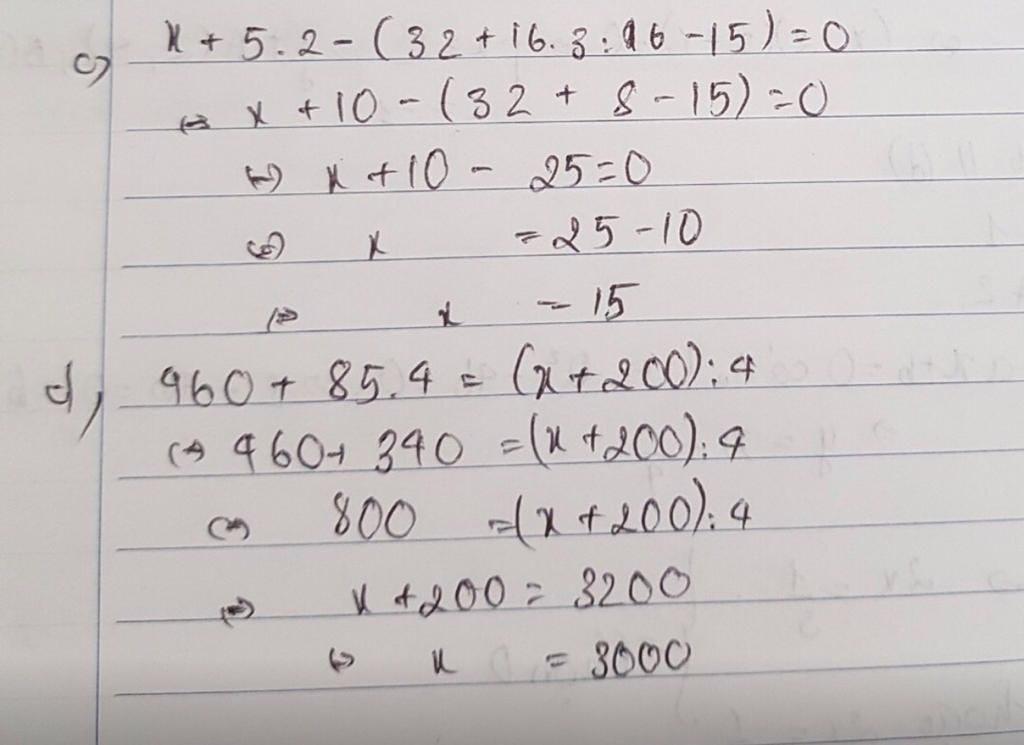 c) x + 5.2 - (32 + 16.3:16 - 15) = 0
⇔ x + 10 - (32 + 8 - 15) = 0
⇔ x + 10 - 25 = 0
⇔ x = 25 - 10
⇔ x = 15
d, 460 + 85.4 = (x + 200):4
⇔ 460 + 340 = (x + 200):4
⇔ 800 = (x + 200):4
⇔ x + 200 = 3200
⇔ x = 3000